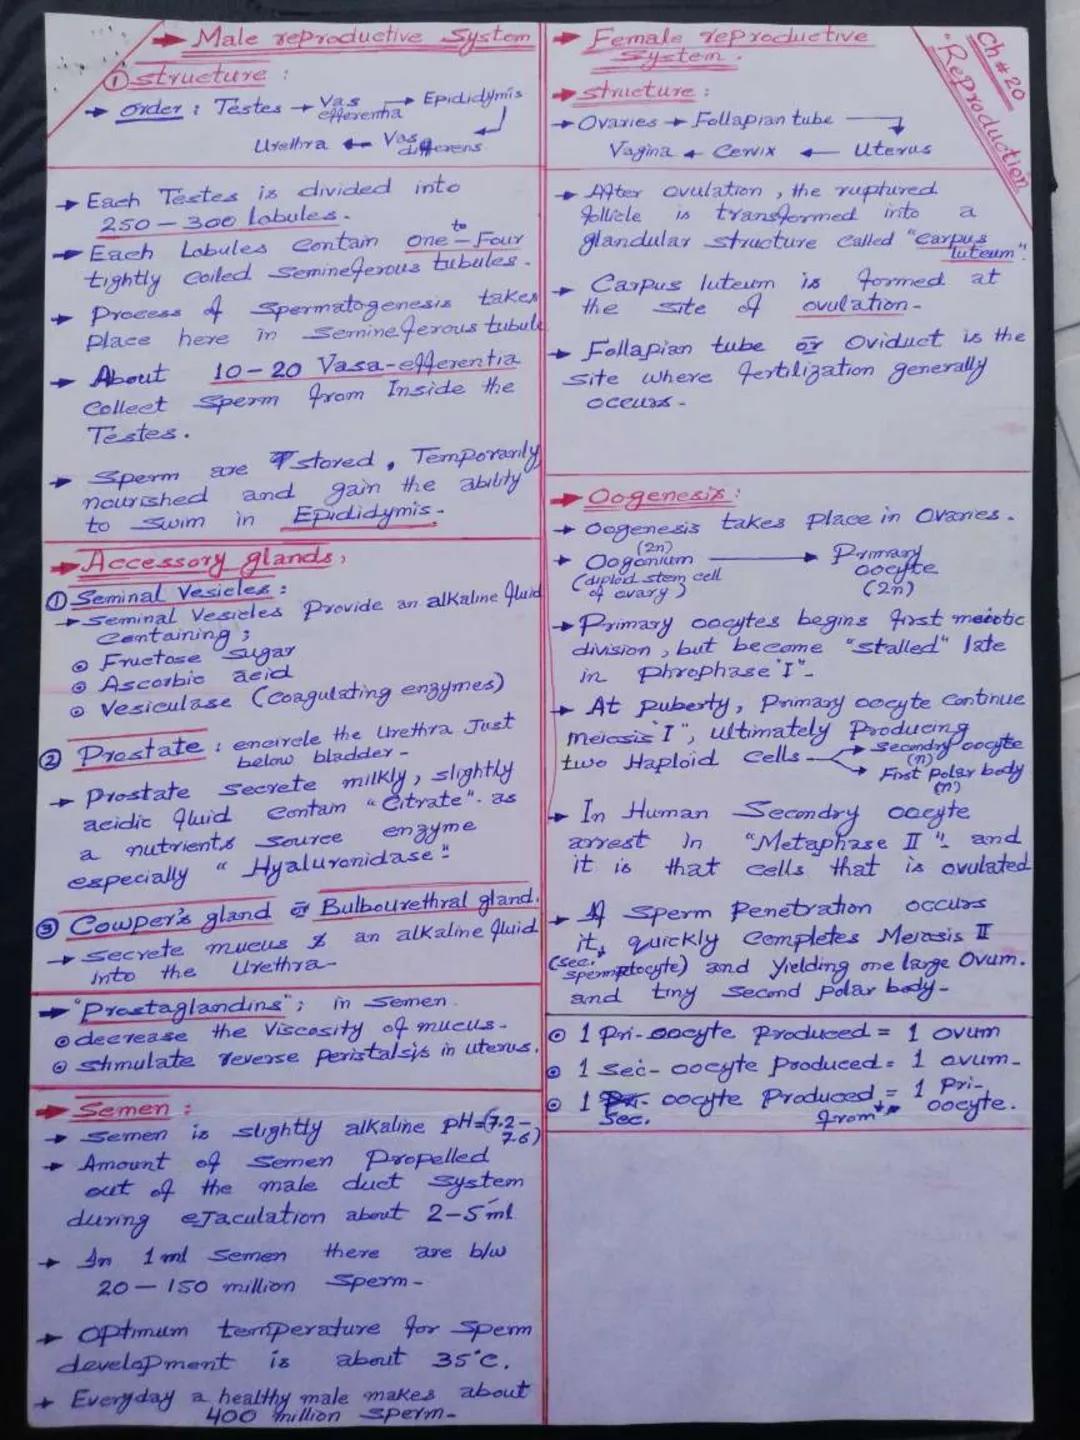 → Male reproductive System
① structure :
→ order : Testes → Vas efferentia → Epididymis
Urethra ← Vas differens
→ Each Testes is divided into
250 – 300 lobules.
→ Each Lobules Contain one to – Four
tightly coiled Semineferous tubules.
→ Process of Spermatogenesis takes
place here in semineferous tubule
→ About 10-20 Vasa-efferentia
Collect sperm from Inside the
Testes.
→ Sperm are stored, Temporarily
nourished and gain the ability
to swim in Epididymis.
→ Accessory glands,
① Seminal Vesicles :
→ Seminal Vesicles Provide an alkaline fluid
Containing ;
⊙ Fructose sugar
⊙ Ascorbic acid
⊙ Vesiculase (Coagulating enzymes)
② Prostate : encircle the Urethra Just
below bladder –
→ Prostate secrete milkly, slightly
acidic fluid contain "Citrate". as
a nutrients source enzyme
especially "Hyaluronidase".
③ Cowper's gland or Bulbourethral gland.
→ secrete mucus & an alkaline fluid
into the Urethra –
→ "Prostaglandins"; in semen
⊙ decrease the viscosity of mucus –
⊙ stimulate reverse peristalsis in uterus.
→ Semen :
→ Semen is slightly alkaline pH=(7.2–
7.6)
→ Amount of semen Propelled
out of the male duct system
during eJaculation about 2–5 ml
→ In 1 ml semen there are b/w
20 – 150 million sperm –
→ Optimum temperature for sperm
development is about 35°C.
→ Everyday a healthy male makes about
400 million sperm –
Ch # 20
"Reproduction
→ Female reproductive
System.
→ structure :
→ Ovaries → Follapian tube →
Vagina ← Cervix ← Uterus
→ After ovulation, the ruptured
follicle is transformed into a
glandular structure called "Carpus
luteum".
→ Carpus luteum is formed at
the site of ovulation –
→ Follapian tube or Oviduct is the
site where fertilization generally
occurs –
→ Oogenesis :
→ Oogenesis takes place in Ovaries.
→ Oogonium (2n) → Primary
oocyte
(diploid stem cell
of ovary) (2n)
→ Primary oocytes begins first meiotic
division, but become "stalled" late
in phrophase "I" –
→ At puberty, Primary oocyte continue
meiosis "I", ultimately Producing
two Haploid Cells → Secondry oocyte
(n)
→ First Polar body
(n)
→ In Human Secondry oocyte
arrest in "Metaphase II" and
it is that cells that is ovulated
→ If sperm Penetration occurs
it, quickly Completes Meiosis II
(sec. and Yielding one large Ovum.
and tiny second polar body –
⊙ 1 Pri- oocyte Produced = 1 ovum
⊙ 1 sec- oocyte Produced = 1 ovum –
⊙ 1 Sec. oocyte Produced from = 1 Pri-
oocyte.